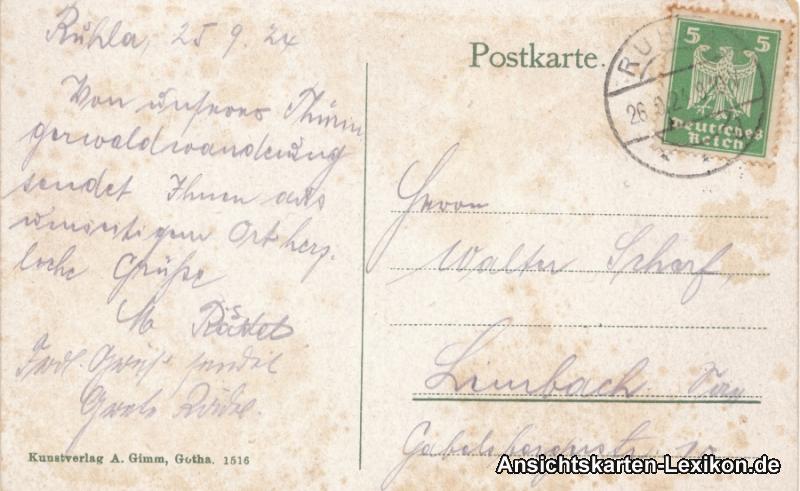 Ruhla, 25 9. 24
Von unserer Thürin
gerwaldwanderung
sendet Ihnen aus
umseitigem Ort herz-
liche Grüße
M
Grete
Kunstverlag A. Gimm, Gotha. 1516
Postkarte.
RUH
26. 9. 24
5 5
Deutsches
Reich
Herrn
Walter Scharf,
Limbach
Gabelsbergerstr. 10
Ansichtskarten-Lexikon.de